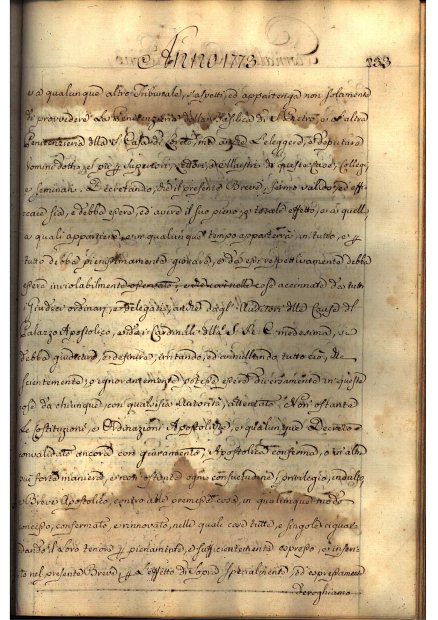 Anno 1773 233
ò à qualunque altro Tribunale, s'aspetti, ed appartenga non solamente
di provvedere La Penitenzieria della Basilica di S. Pietro, e l'altra
Penitenzieria della S. Casa di Loreto, mà anche Leleggere, e deputare
uomini dotti, e pii per Superiori, Lettori, e Maestri di queste Case, Collegj,
e Seminarj. Decretando, che il presente Breve, sermo valido, ed effi-
cace sia, e debba essere, ed avere il suo pieno, e totale effetto, e à quelli
a quali appartiene, e in qualunque tempo apparterrà, in tutto, e per
tutto debba pienissimamente giovare, e da essi respettivamente debba
essere inviolabilmente osservato, e nelle cose accennate da tutti
i Giudici ordinarj, e Delegati, anche dagl' Auditori delle Cause del
Palazzo Apostolico, e da i Cardinali della S. R. C. medesima, si
debba giudicare, e definire, irritando, ed annullando tutto ciò, che
scientemente, o ignorantemente potesse essere diversamente in queste
cose da chiunque, con qualsisia Autorità, attentato. Non ostante
Le Costituzioni, e Ordinazioni Apostoliche, e qualunque Decreto
convalidato ancora con giuramento, Apostolica conferma, o in altra
più forte maniera, e non ostante ogni consuetudine, privilegio, indulto,
e Brevi Apostolici, contro alle premesse cose, in qualunque modo
concesso, confermato, e rinnovato, nelle quali cose tutte, e singole riguar-
dando il Loro tenore per pienamente, e sufficientemente espresso, e inserito
nel presente Breve, per L'effetto di sopra specialmente, ed espressamente
deroghiamo